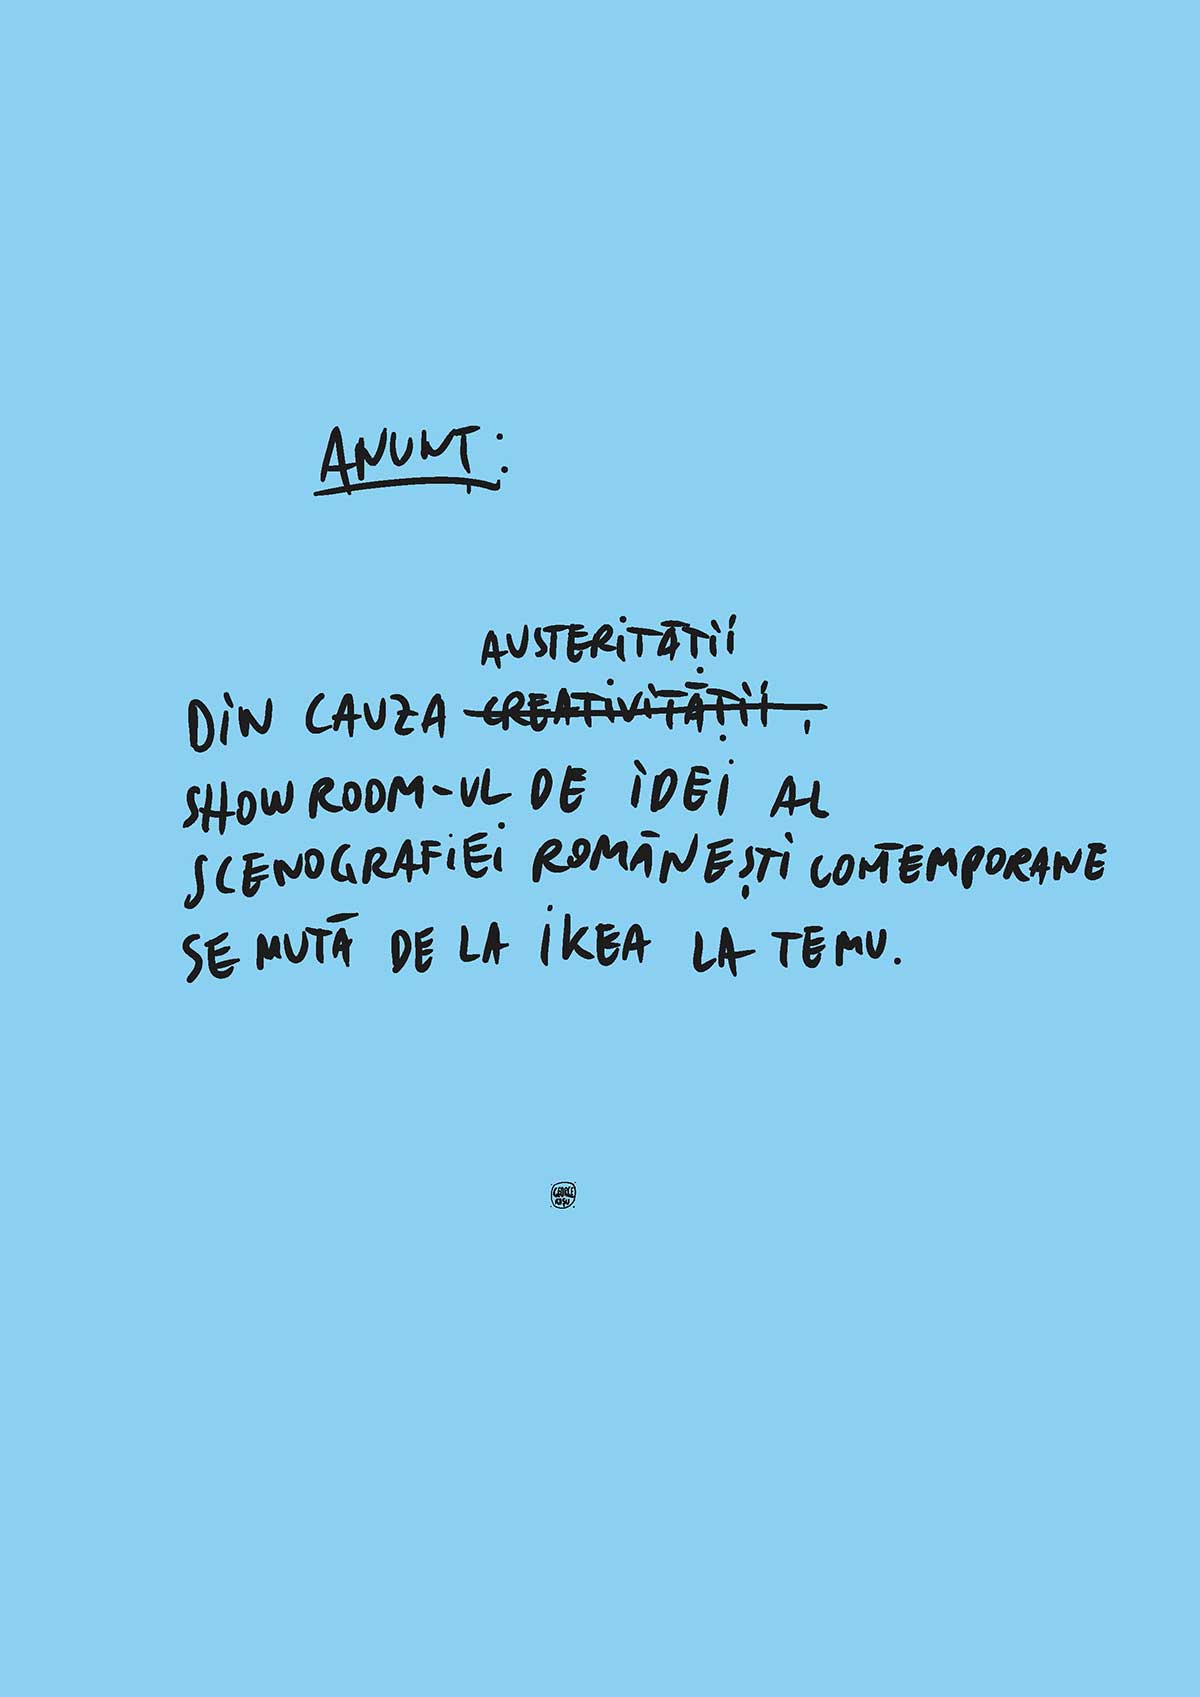 ANUNȚ:
AUSTERITĂȚII
DIN CAUZA CREATIVITĂȚII,
SHOWROOM-UL DE IDEI AL
SCENOGRAFIEI ROMÂNEȘTI CONTEMPORANE
SE MUTĂ DE LA IKEA LA TEMU.
GEORGE
ROȘU